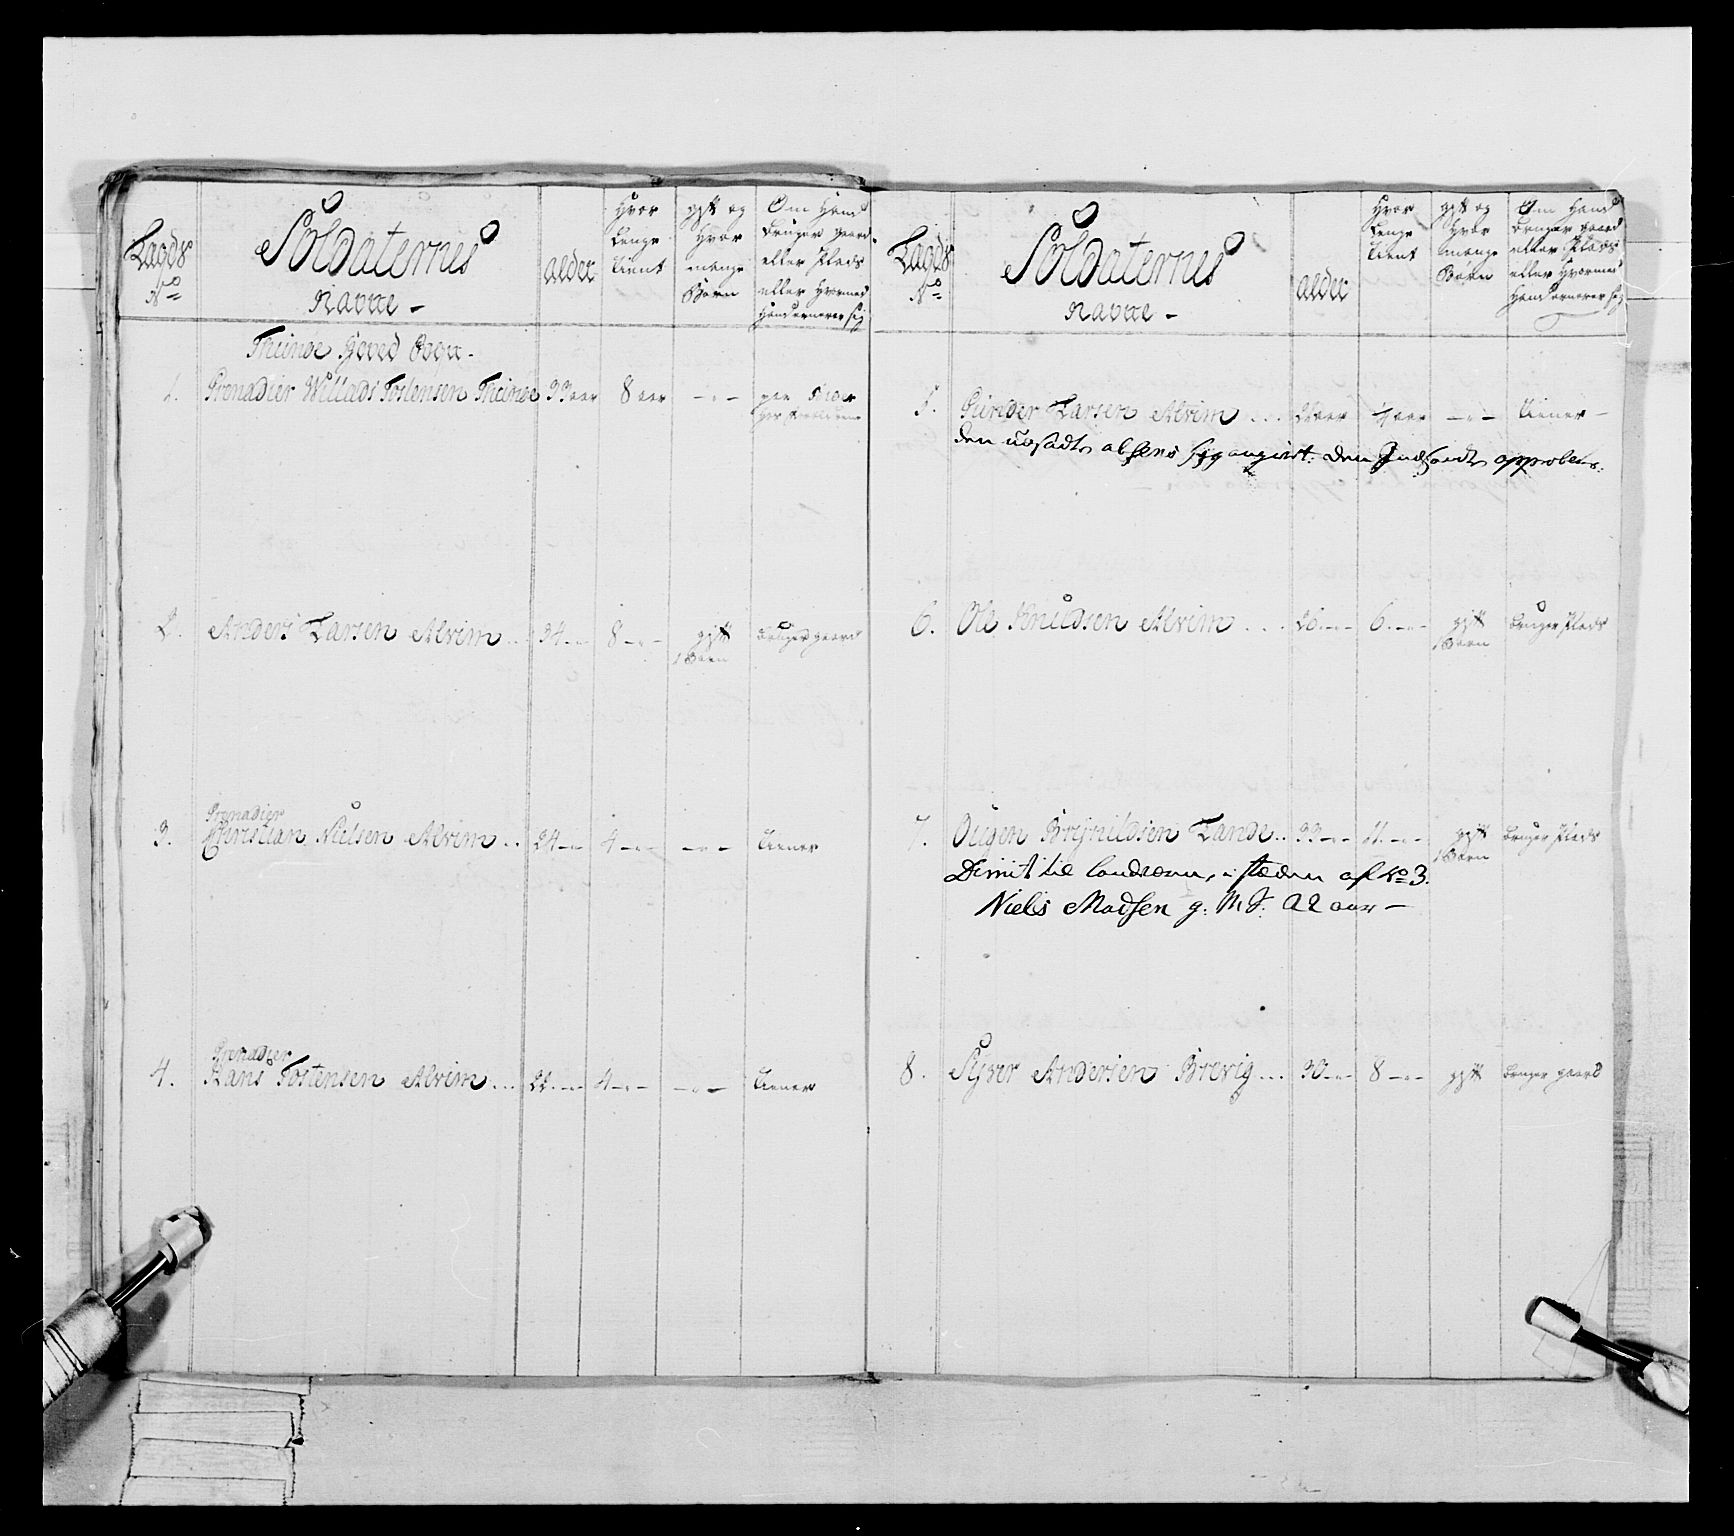 Lagds No
Soldaternes Navne -
alder
Hvor Lenge tient
gift og Hvor mange Børn
Om Hand bruger gaard eller Plads eller Hvormed Hand ernærer sig
Thunøe Hoved Sogn -
1. Grenadier Willads Tostensen Thunøe 33 aar 8 aar - - -
2. Anders Larsen Alvim .. 34 - - 8 - - gift 1 Barn bruger gaard
3. Grenadier Christian Nielsen Alvim .. 24 - - 4 - - - - - tiener
4. Grenadier Hans Tostensen Alvim ... 22 - - 4 - - - - - tiener
Lagds No
Soldaternes Navne -
alder
Hvor Lenge tient
gift og Hvor mange Børn
Om Hand bruger gaard eller Plads eller Hvormed Hand ernærer sig
5. Gunder Larsen Alvim .... aar 4 aar - - - tiener -
den udsadte angivet: den Indsadte
6. Ole Knudsen Alvim .... 26 - - 6 - - gift 1 Barn bruger Plads
7. Ougen Brynildsen Lande .. 33 - - 11 - - gift 1 Barn bruger Plads
Dimit til landværn, i stæden af No 3.
Niels Madsen g: M S: 22 aar -
8. Syver Andersen Brevig ... 30 - - 8 - - gift bruger gaard